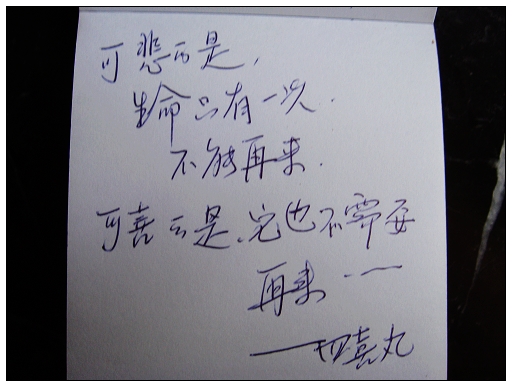 可悲的是,
生命只有一次.
不能再来.
可喜的是,它也不需要
再来 ——
——四喜丸